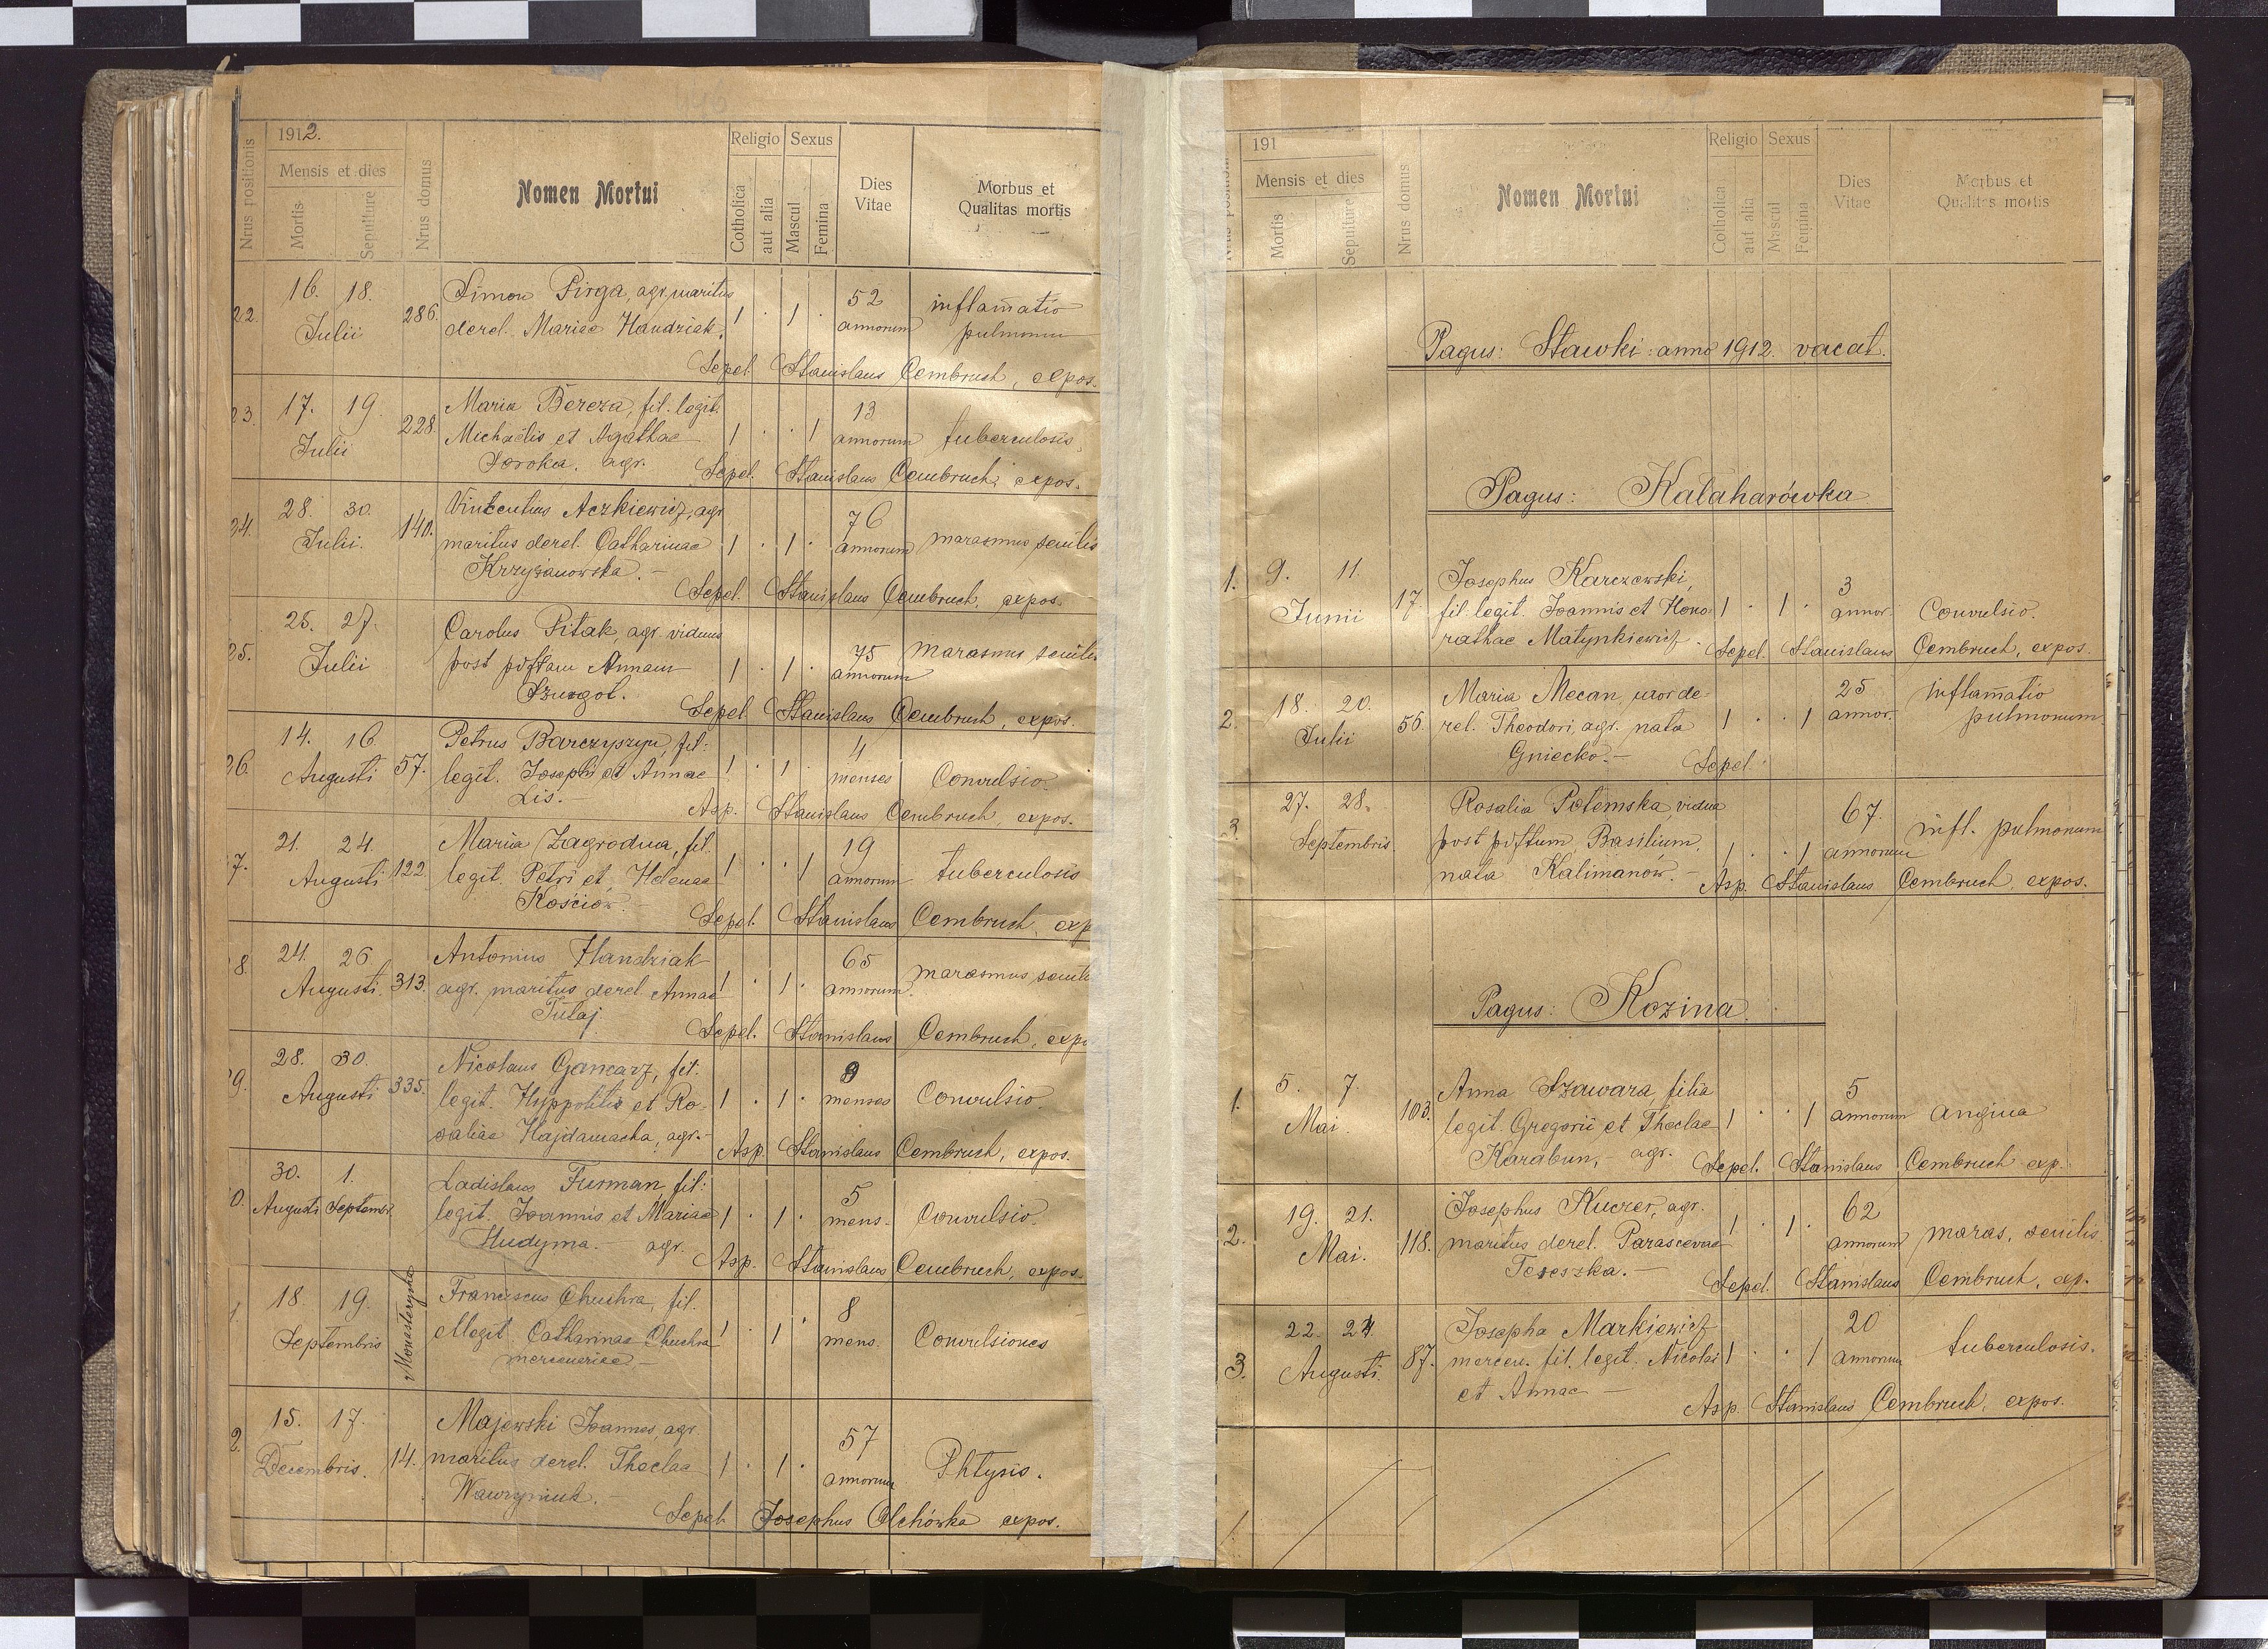 1912.
Nrus positionis
Mensis et dies
Mortis
Sepulture
Nrus domus
Nomen Mortui
Religio
Cotholica
aut alia
Sexus
Mascul
Femina
Dies Vitae
Morbus et
Qualitas mortis
22. 16. 18. Julii 286. Simon Pirga, agr. maritus
derel. Mariae Handziak. 1 . 1 . 52 annorum inflam̄atio pulmonum
Sepel. Stanislaus Cembruch, expos.
23. 17. 19. Julii 228. Maria Bereza, fil. legit.
Michaëlis et Agathae
Soroka. agr. 1 . . 1 13 annorum tuberculosis
Sepel. Stanislaus Cembruch, expos.
24. 28. 30. Julii. 140. Vincentius Aczkiewicz, agr.
maritus derel. Catharinae
Krzyżanowska. 1 . 1 . 76 annorum marasmus senilis
Sepel. Stanislaus Cembruch, expos.
25. 25. 27. Julii Carolus Pitak, agr. viduus
post p̄ftam Annam
Szurgot. 1 . 1 . 75 annorum marasmus senilis
Sepel. Stanislaus Cembruch, expos.
26. 14. 16. Augusti 57. Petrus Barczyszyn, fil:
legit. Josephi et Annae
Lis. 1 . 1 . 4 menses Convulsio.
Asp. Stanislaus Cembruch, expos.
7. 21. 24. Augusti 122. Maria Zagrodna, fil.
legit. Petri et Helenae
Kościów. 1 . . 1 19 annorum tuberculosis
Sepel. Stanislaus Cembruch, exp
8. 24. 26. Augusti. 313. Antonius Handziak
agr. maritus derel. Annae
Tulaj. 1 . 1 . 65 annorum. marasmus senilis
Sepel. Stanislaus Cembruch, expo
9. 28. 30. Augusti 335. Nicolaus Gancarz, fil.
legit. Hyppolitis et Ro-
saliae Hajdamacha, agr. 1 . 1 . 9 menses Convulsio.
Asp. Stanislaus Cembruch, expos.
0. 30. Augusti 1. Septembr. Ladislaus Furman, fil:
legit. Joannis et Mariae
Hudyma. agr. 1 . 1 . 5 mens. Convulsio.
Asp. Stanislaus Cembruch, expos.
1. 18. 19. Septembris Monasterycha Franciscus Chuchra, fil.
illegit. Catharinae Chuchra
mercenariae. 1 . 1 . 8 mens. Convulsiones
2. 15. 17. Decembris. 14. Majewski Joannes, agr.
maritus derel. Theclae
Wawryniuk. 1 . 1 . 57 annorum Phtysis.
Sepel. Josephus Olchówka expos.
191
Mensis et dies
Mortis
Sepulture
Nrus domus
Nomen Mortui
Religio
Cotholica
aut alia
Sexus
Mascul
Femina
Dies Vitae
Morbus et
Qualitas mortis
Pagus: Stawki: anno 1912. vacat.
Pagus: Kałaharówka
1. 9. 11. Junii 17. Josephus Karczewski,
fil. legit. Joannis et Hono-
rathae Matynkiewicz. 1 . 1 . 3 annor. Convulsio.
Sepel. Stanislaus Cembruch, expos.
2. 18. 20. Julii 56. Maria Mecan, uxor de-
rel. Theodori, agr. nata
Gniecko. 1 . . 1 25 annor. inflam̄atio pulmonum.
Sepel.
3. 27. 28. Septembris Rosalia Potemska, vidua
post p̄ftum Basilium,
nata Kalimanów. 1 . . 1 67. annorum infl. pulmonum
Asp. Stanislaus Cembruch, expos.
Pagus: Kozina.
1. 5. 7. Mai. 103. Anna Szawara, filia
legit. Gregorii et Theclae
Karabun, agr. 1 . . 1 5 annorum angina
Sepel. Stanislaus Cembruch exp.
2. 19. 21. Mai. 118. Josephus Kuczer, agr.
maritus derel. Parascevae
Tereszka. 1 . 1 . 62 annorum maras. senilis.
Sepel. Stanislaus Cembruch, exp.
3. 22. 24. Augusti. 87. Josepha Markiewicz
mercen. fil. legit. Nicolai
et Annae 1 . . 1 20 annorum tuberculosis.
Asp. Stanislaus Cembruch, expos.